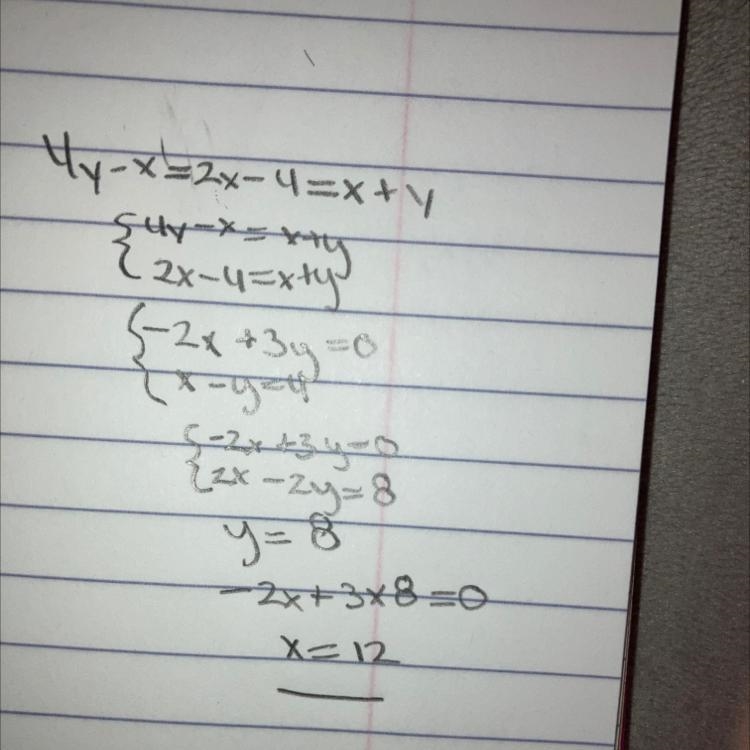 4y-x=2x-4=x+y
{4y-x=x+y
2x-4=x+y
{-2x+3y=0
x-y=4
{-2x+3y=0
2x-2y=8
y=8
-2x+3x8=0
x=12